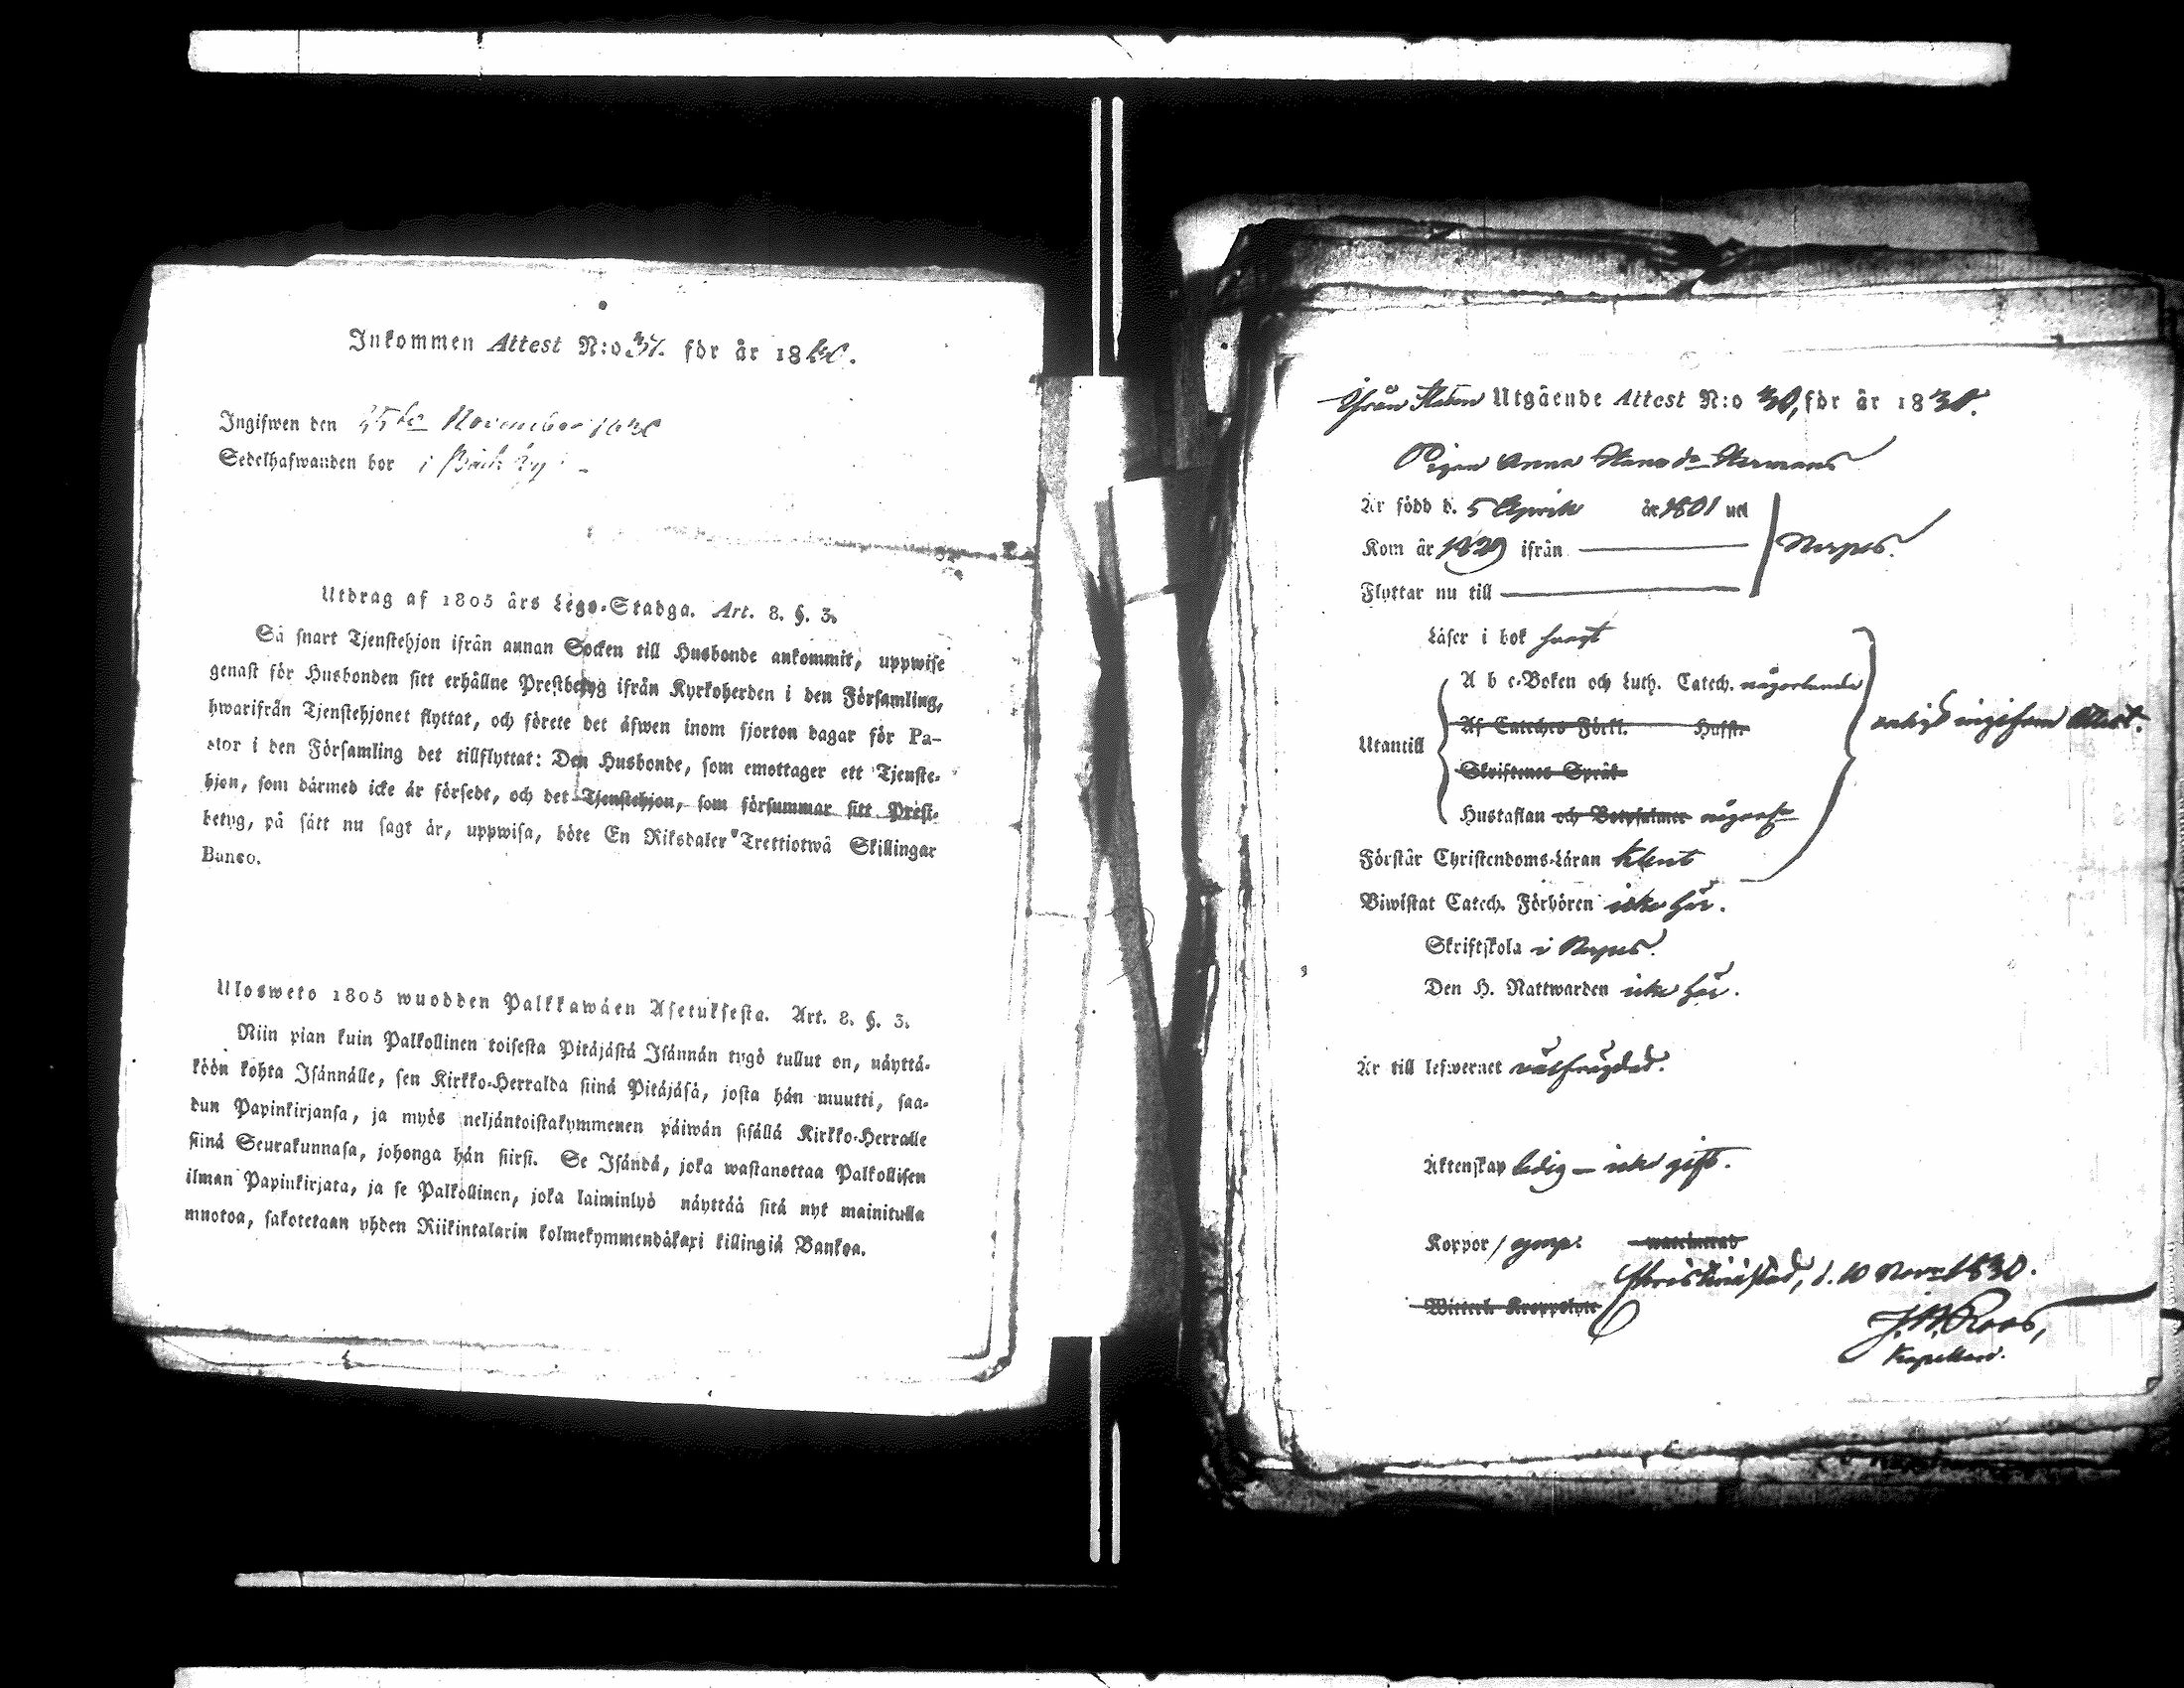 Inkommen Attest N:o 37. för år 1830.
Ingifwen den 25te November 1830
Sedelhafwanden bor i
Utdrag af 1805 års Lego-Stadga. Art. 8. §. 3.
Så snart Tjenstehjon ifrån annan Socken till Husbonde ankommit, uppwise
genast för Husbonden sitt erhållne Prestbetyg ifrån Kyrkoherden i den Församling,
hwarifrån Tjenstehjonet flyttat, och förete det äfwen inom fjorton dagar för Pa-
stor i den Församling det tillflyttat: Den Husbonde, som emottager ett Tjenste-
hjon, som därmed icke är försedt, och det Tjenstehjon, som försummar sitt Prest-
betyg, på sätt nu sagt är, uppwisa, böte En Riksdaler Trettiotwå Skillingar
Banco.
Ulosweto 1805 wuodden Palkkawäen Asetuksesta. Art. 8. §. 3.
Niin pian kuin Palkollinen toisesta Pitäjästä Isännän tygö tullut on, näyttä-
köön kohta Isännälle, sen Kirkko-Herralda siinä Pitäjäsä, josta hän muutti, saa-
dun Papinkirjansa, ja myös neljäntoistakymmenen päiwän sisällä Kirkko-Herralle
siinä Seurakunnasa, johonga hän siirsi. Se Isändä, joka wastanottaa Palkollisen
ilman Papinkirjata, ja se Palkollinen, joka laiminlyö näyttää sitä nyt mainitulla
muotoa, sakotetaan yhden Riikintalarin kolmekymmendäkaxi killingiä Bankoa.
Ifrån Staden Utgående Attest N:o 30, för år 1830.
Pigan Anna Hansdr Hermans
Är född d. 5 Aprill år 1801 uti
Kom år 1829 ifrån Nerpes.
Flyttar nu till
Läser i bok svagt
A b c-Boken och Luth. Catech. någorlunda
Af Cateches Förkl. Hufst
enligt ingifven Attest.
Utantill
Skriftenes Språk
Hustaflan och Botpsalmer
Förstår Christendoms-Läran klent
Biwistat Catech. Förhören icke här.
Skriftskola i Nerpes.
Den H. Nattwarden icke här.
Är till lefwernet välfrägdad.
Äktenskap ledig — icke gift.
Koppor
Christinæstad, d. 10 Novr 1830.
J. W. Roos,
Kapellan.